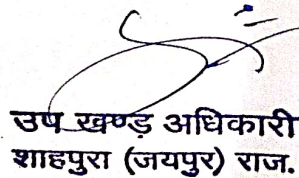 उप खण्ड़ अधिकारी
शाहपुरा (जयपुर) राज.